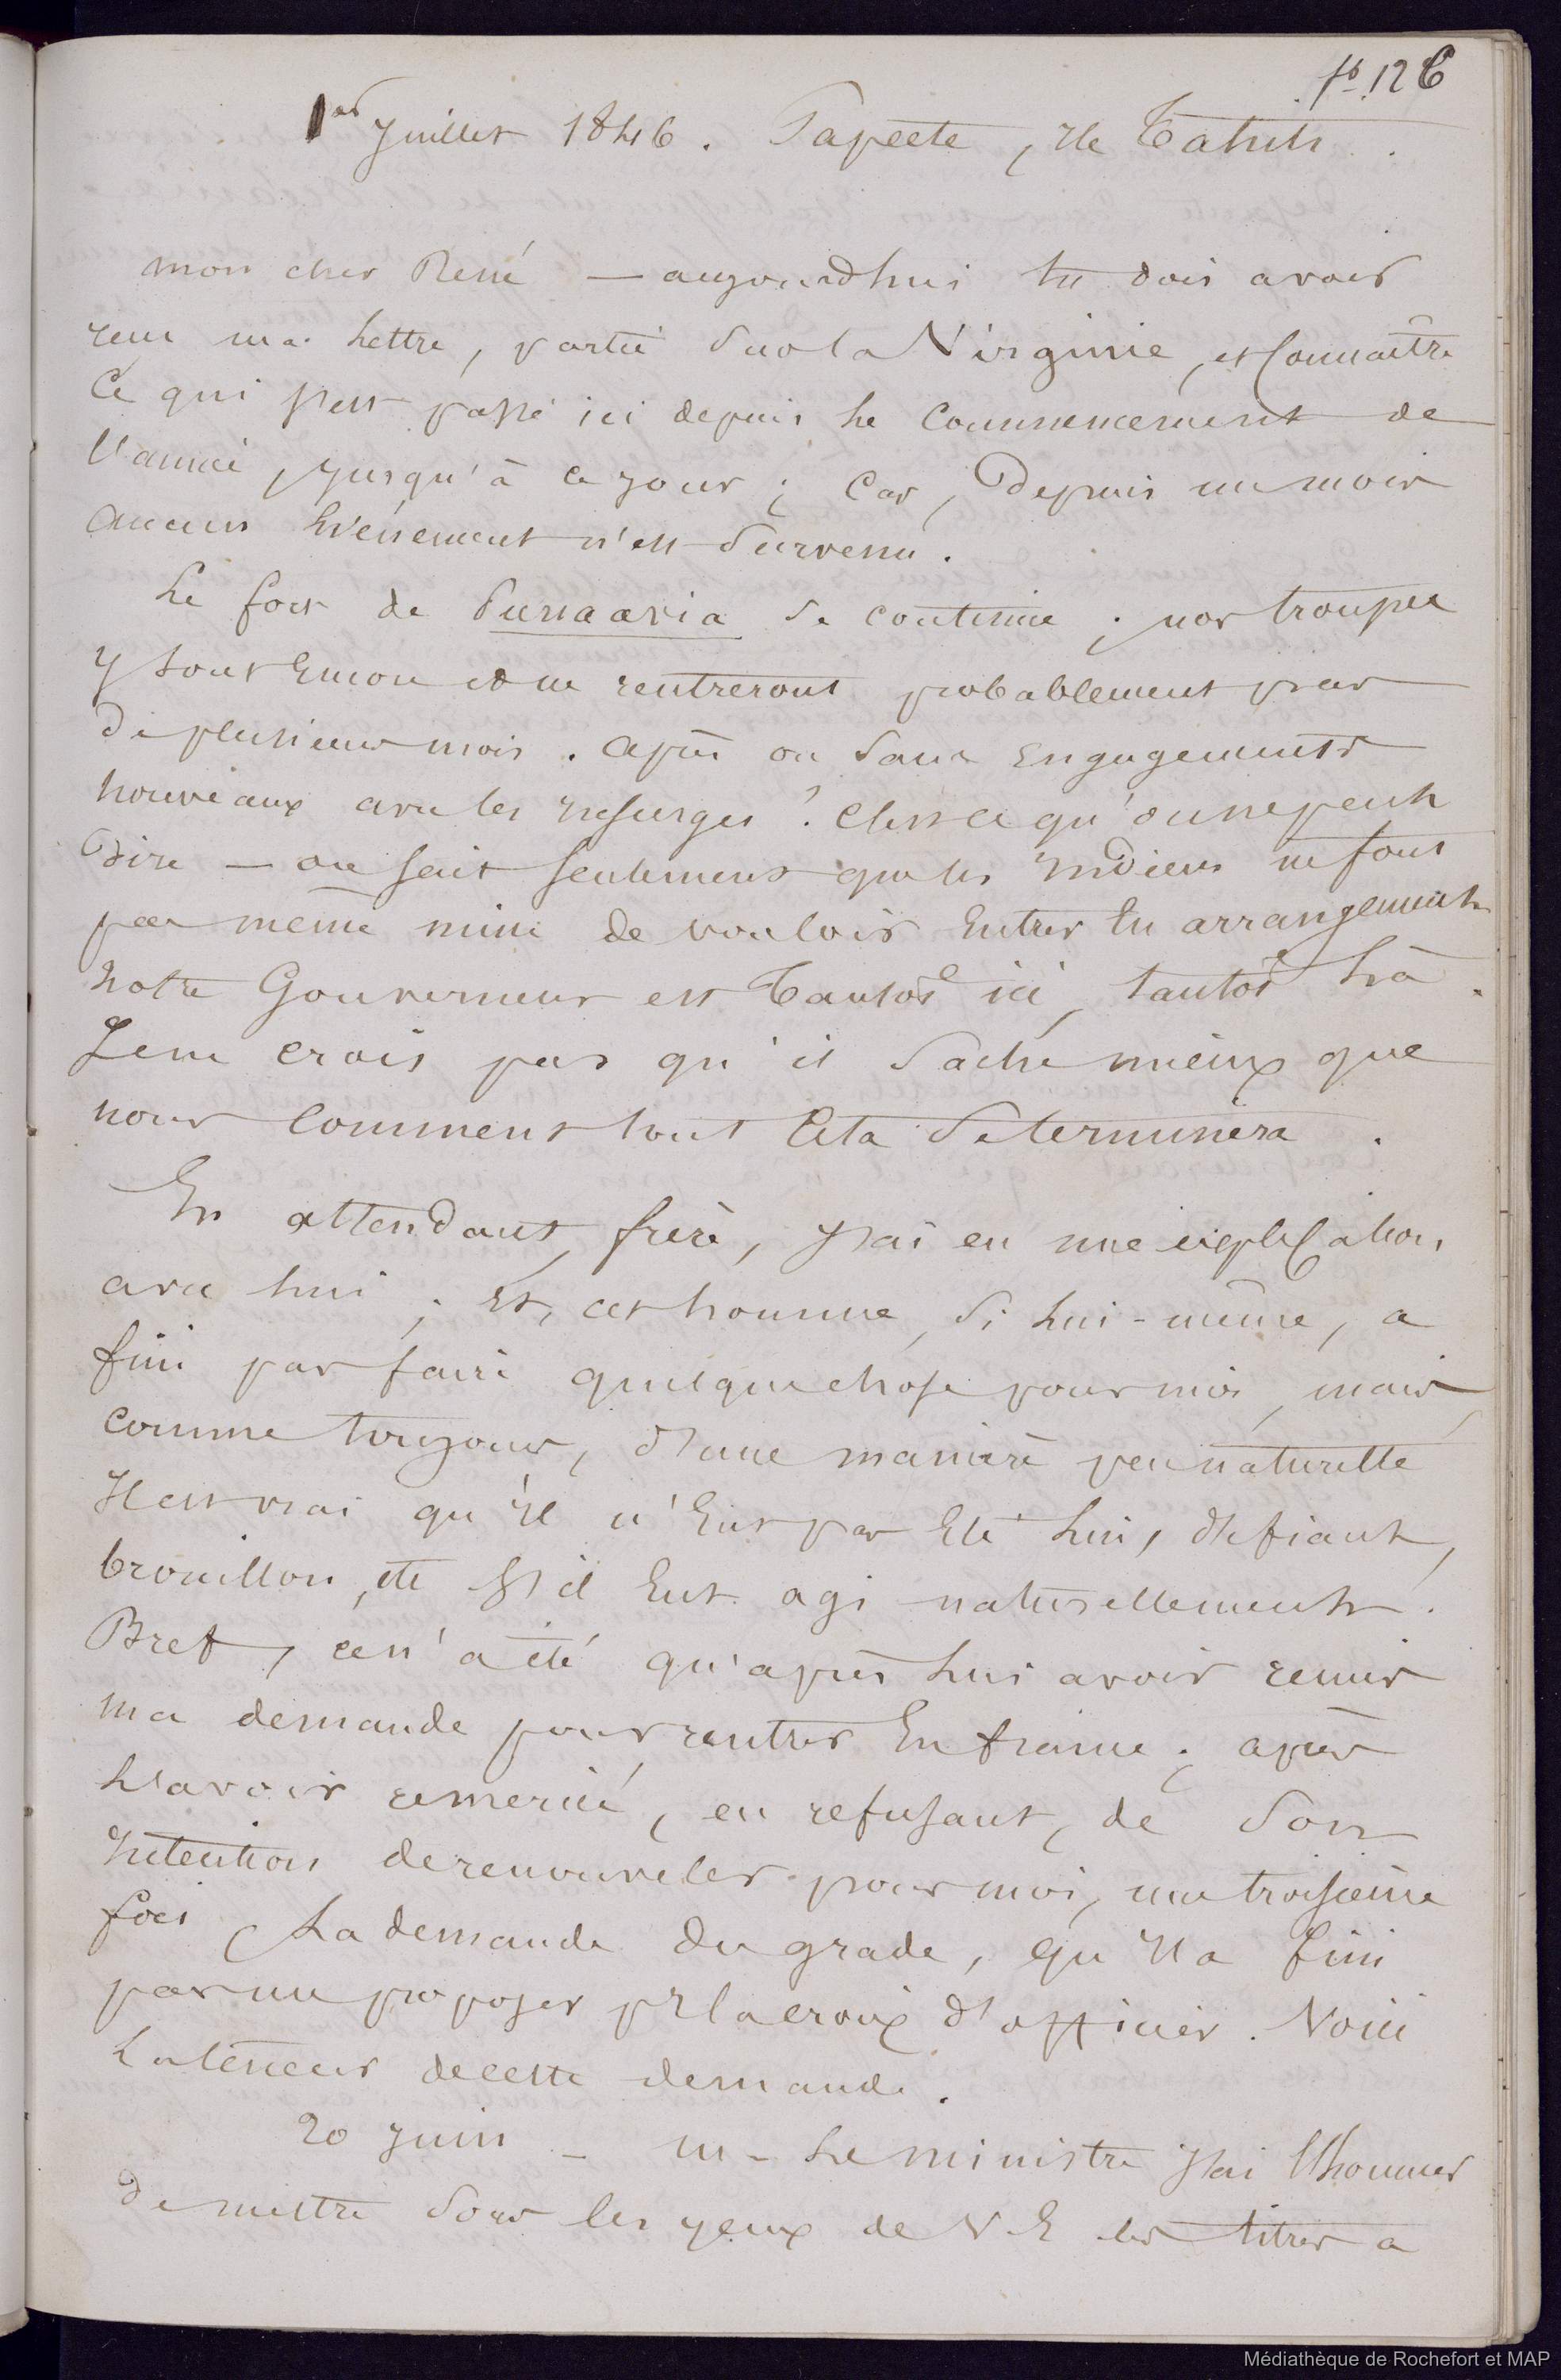 fo 126
1er Juillet 1846. Papeete, Ile Tahiti.
mon cher René — aujourd'hui tu dois avoir
reçu ma lettre, partie sur la Virginie, et connaître
ce qui s'est passé ici depuis le commencement de
l'année, jusqu'à ce jour; car, depuis un mois
aucun événement n'est survenu.
Le fort de Punaavia se continue; nos troupes
y sont encore et ne rentreront probablement pas
de plusieurs mois. après ou sans engagements
nouveaux avec les insurgés? C'est ce qu'on ne peut
dire — on sait seulement que les Indiens ne font
pas même mine de vouloir entrer en arrangements
notre Gouverneur est tantôt ici, tantôt là.
Je ne crois pas qu'il sache mieux que
nous comment tout cela se terminera.
En attendant, frère, j'ai eu une explication
avec lui; Et, cet homme, si lui-même, a
fini par faire quelque chose pour moi, mais,
comme toujours, d'une manière peu naturelle
Il est vrai qu'il n'eut pas été lui, défiant,
brouillon, etc s'il eut agi naturellement.
Bref, ce n'a été qu'après lui avoir remis
ma demande pour rentrer en france; après
l'avoir remercié, en refusant, de son
intention de renouveler pour moi, une troisième
fois, la demande du grade, qu'il a fini
par me proposer pr la croix d'officier. Voici
la teneur de cette demande.
20 juin — m. le ministre j'ai l'honneur
de mettre sous les yeux de V. E les titres a
Médiathèque de Rochefort et MAP